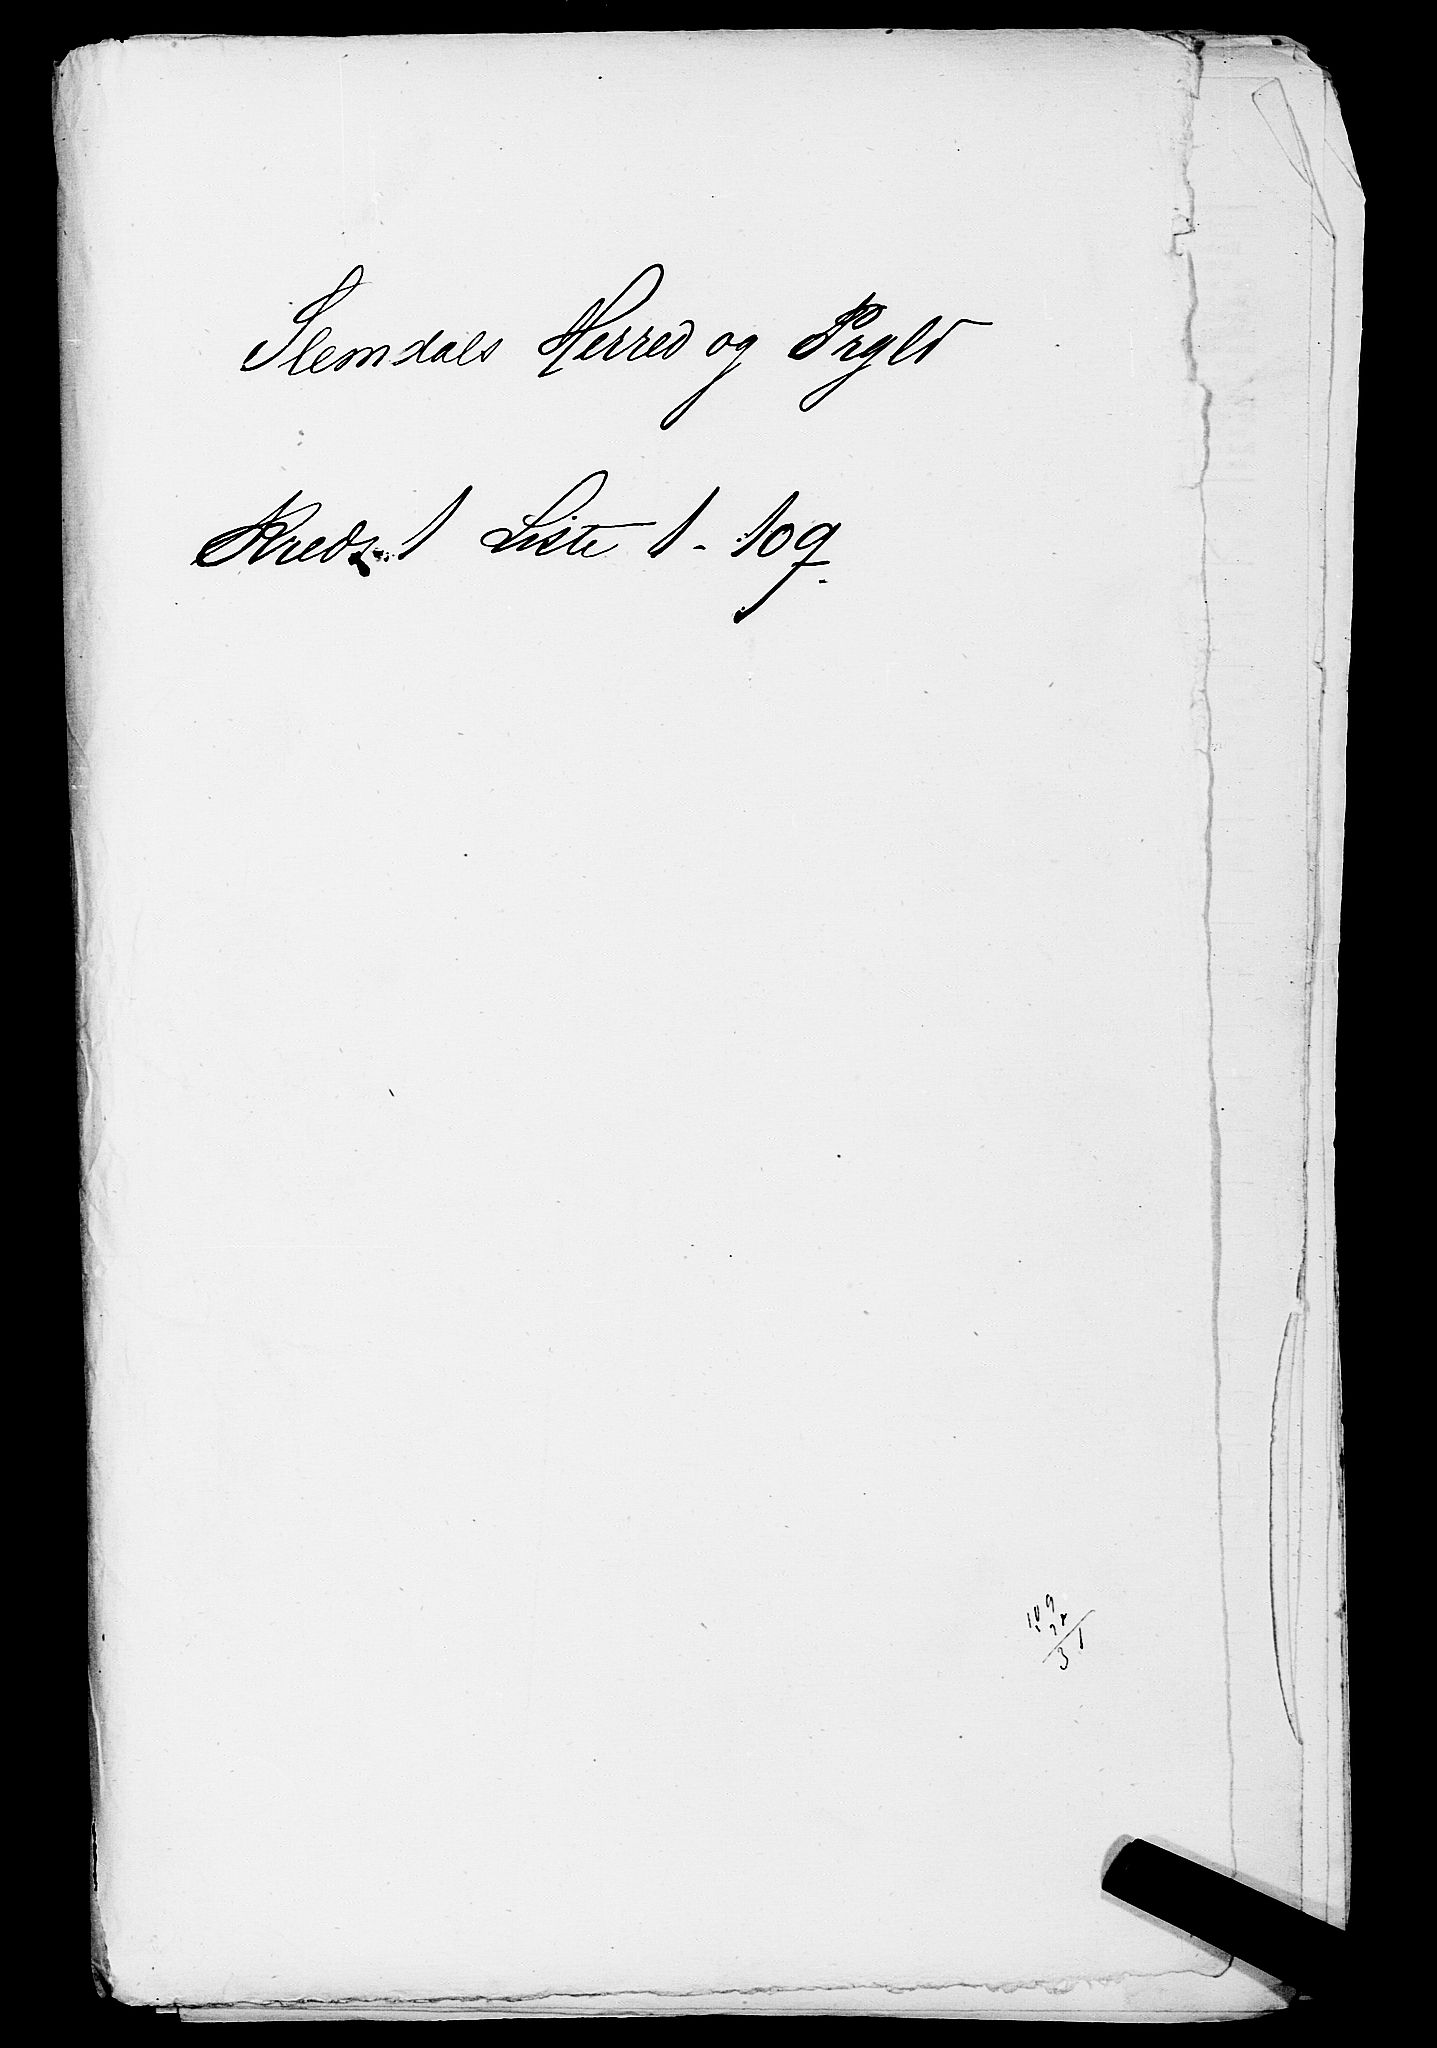 Slemdals Herred og Prgld
Kreds 1 Liste 1 - 109.
109